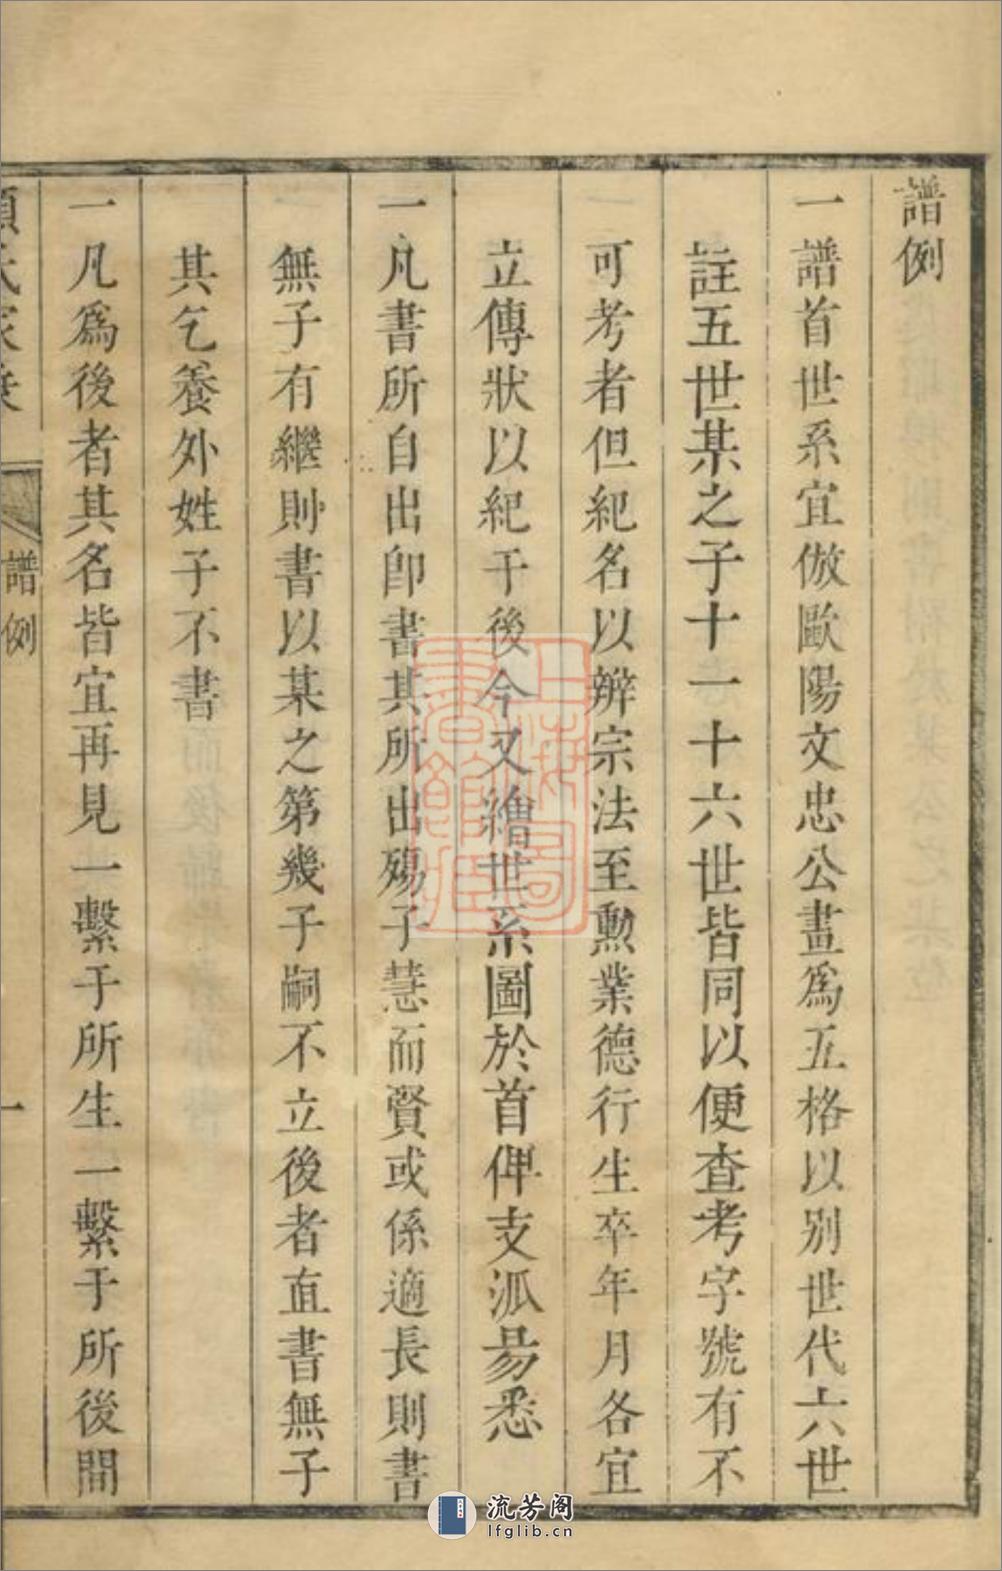 譜例
一譜首世系宜倣歐陽文忠公畫爲五格以别世代六世
註五世某之子十一十六世皆同以便查考字號有不
可考者但紀名以辨宗法至勲業德行生卒年月各宜
立傳狀以紀于後今又繪世系圖於首俾支派昜悉
一凡書所自出卽書其所出殤子慧而賢或係適長則書
無子有繼則書以某之第幾子嗣不立後者直書無子
其乞養外姓子不書
一凡爲後者其名皆宜再見一繫于所生一繫于所後間
譜例
一
上海圖書館藏
流芳阁
lfglib.cn